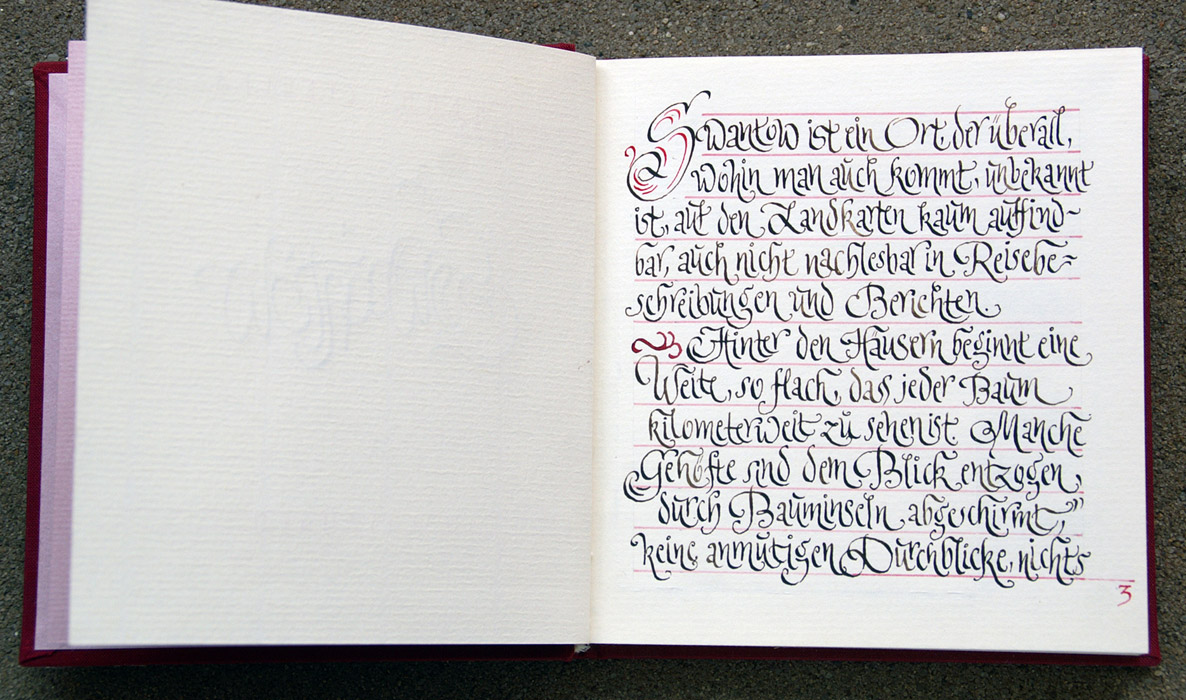 Swantow ist ein Ort, der überall,
wohin man auch kommt, unbekannt
ist, auf den Landkarten kaum auffind-
bar, auch nicht nachlesbar in Reisebe=
schreibungen und Berichten.
Hinter den Häusern beginnt eine
Weite, so flach, das jeder Baum
kilometerweit zu sehen ist. Manche
Gehöfte sind dem Blick entzogen,
durch Bauminseln abgeschirmt,
keine anmutigen Durchblicke, nichts
3